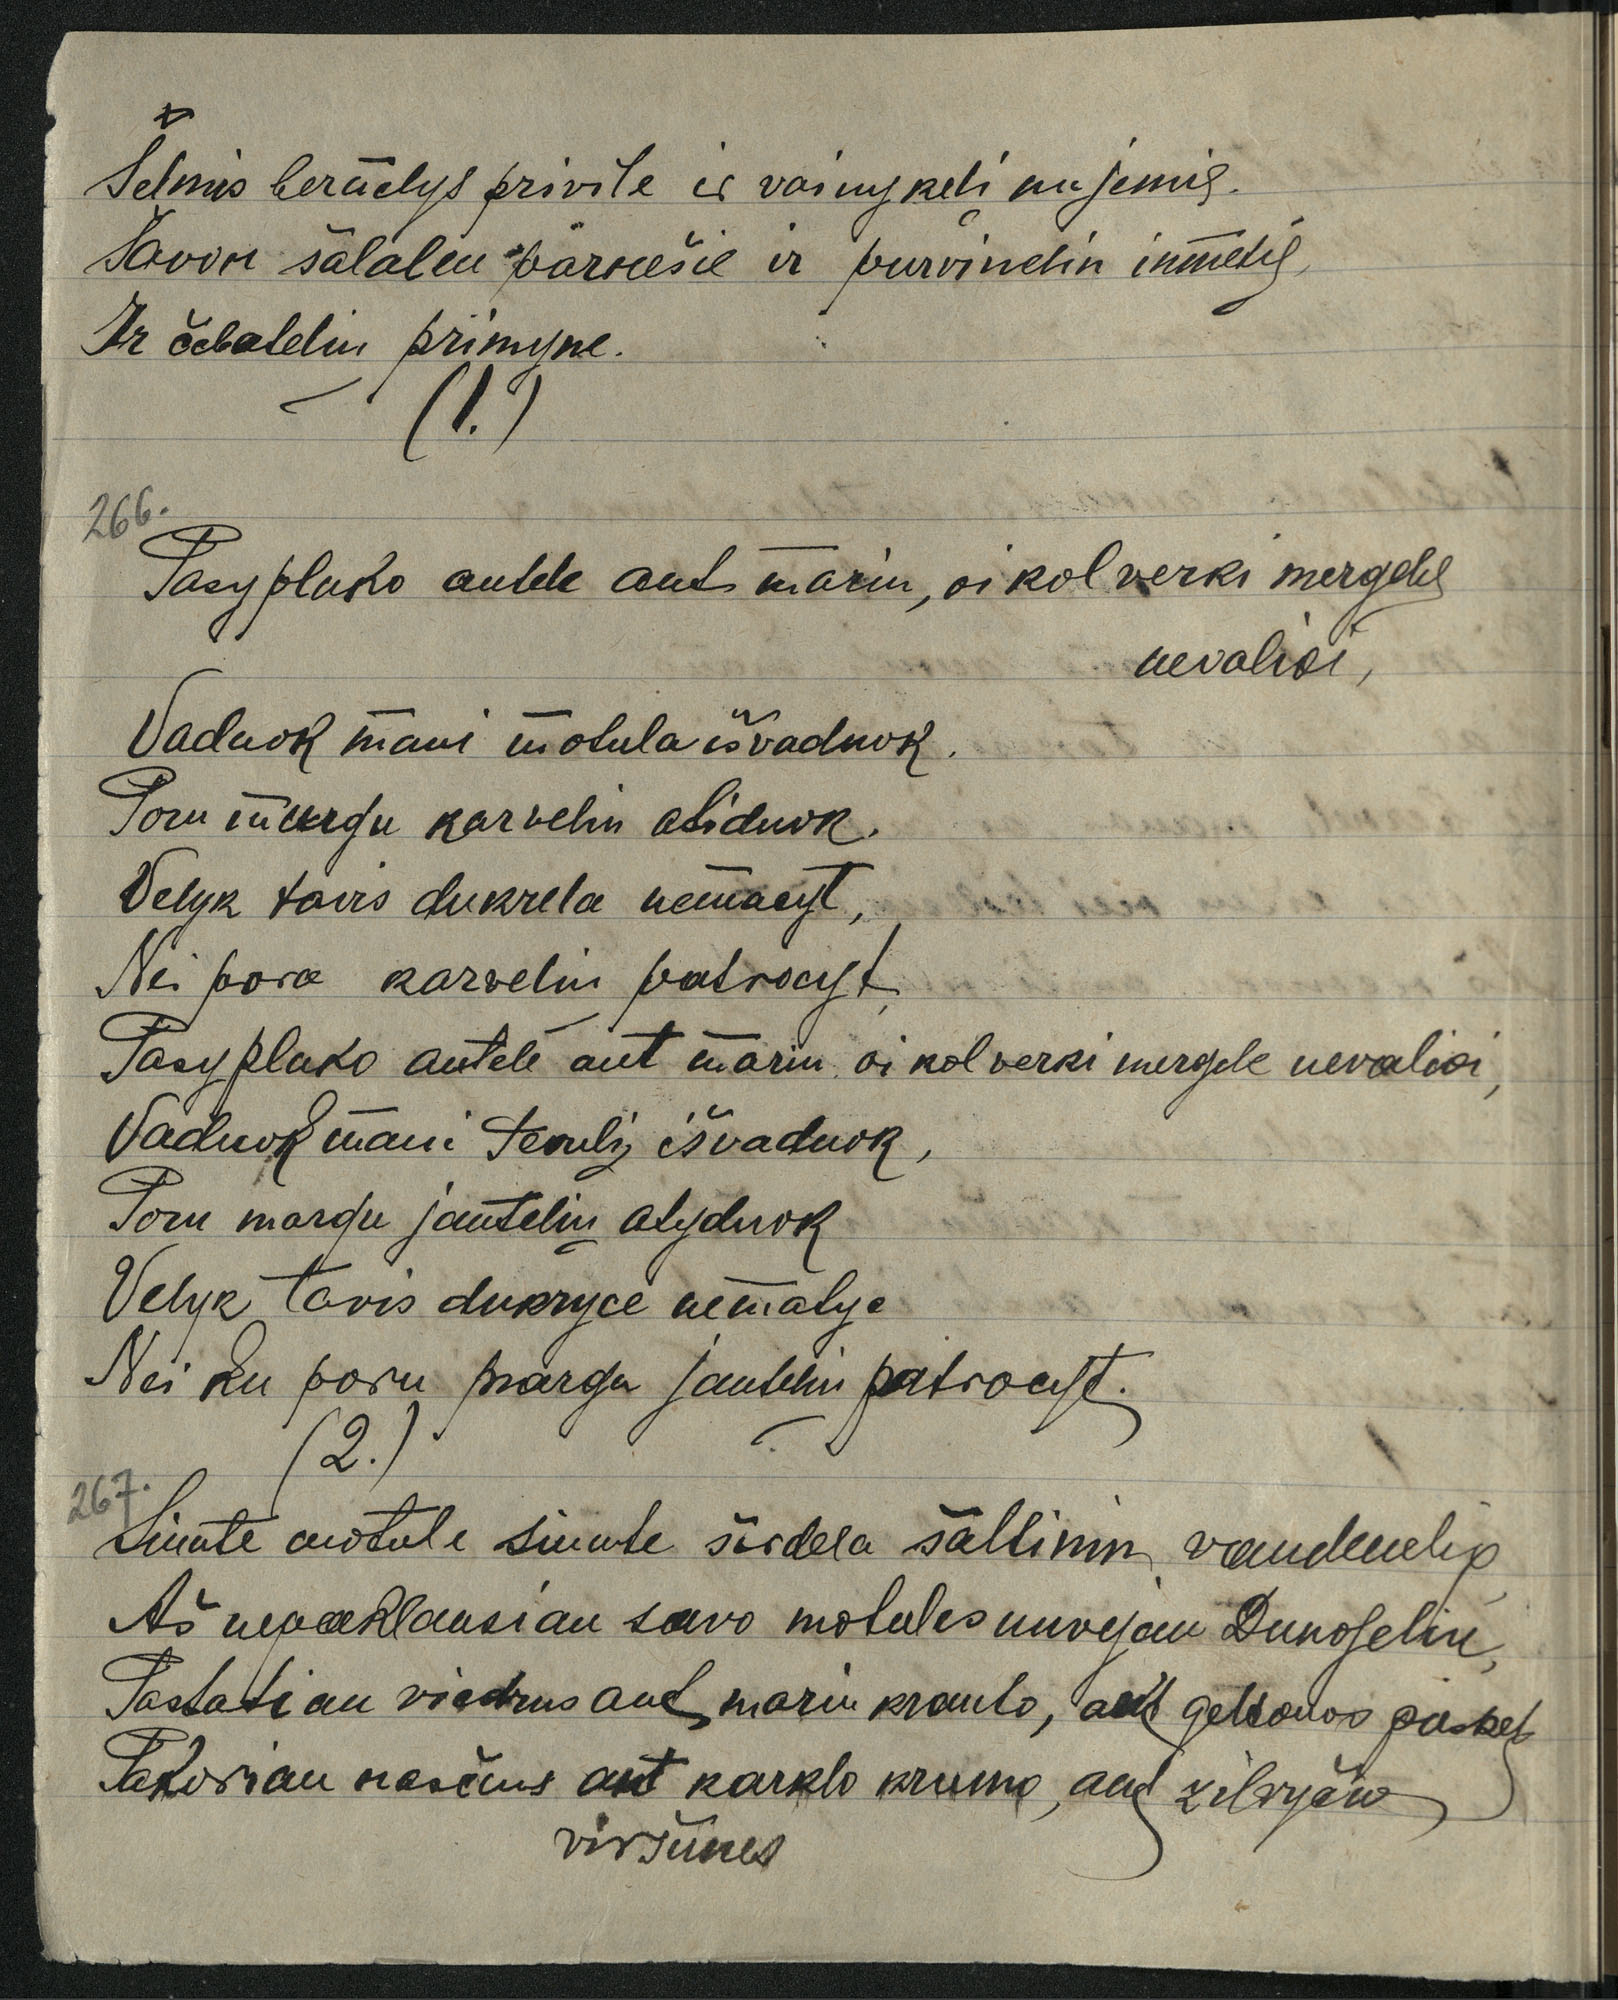 Šelmis bernelys privile ir vainykeli nujemie.
Savon šalalen parnešie ir purvinelin inmetie,
Ir čebatelin primyne.
(1.)
266.
Pasyplako antele ant marin, oi kol verki mergele
nevalioi,
Vaduok mani motula išvaduok.
Poru margu karvelin atiduok.
Velyk tavis dukrela nemacyt,
Nei pora karvelin patrocyt
Pasyplako antele ant marin, oi kol verki mergele nevalioi,
Vaduok mani tevuli išvaduok,
Poru margu jautelin atyduok
Velyk tavis dukryce nematyc
Nei ku poru margu jautelin patrocyt.
(2.)
267.
Siunte motule siunte širdela šaltinin vandenelio
Aš nepaklausiau savo motules nuvejau Dunojelin,
Pastatiau viedrus ant marin kranto, ant geltonos pieskel
Pakoriau naščius ant karklo krumo, ant žilvyčio
viršūnes